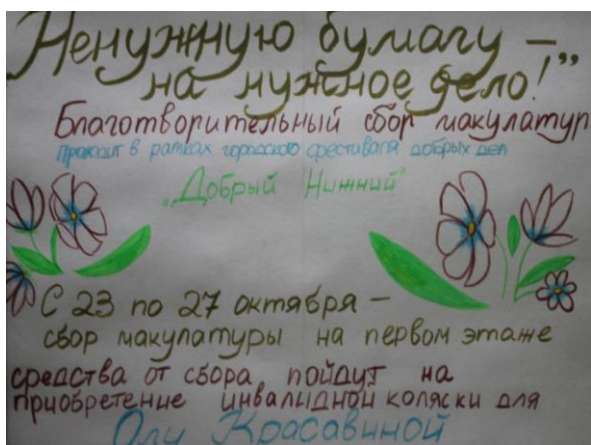 Ненужную бумагу –
на нужное дело!”
Благотворительный сбор макулатур
Проходит в рамках городского фестиваля добрых дел
„Добрый Нижний"
С 23 по 27 октября –
сбор макулатуры на первом этаже
средства от сбора пойдут на
приобретение инвалидной коляски для
Оли Красавиной